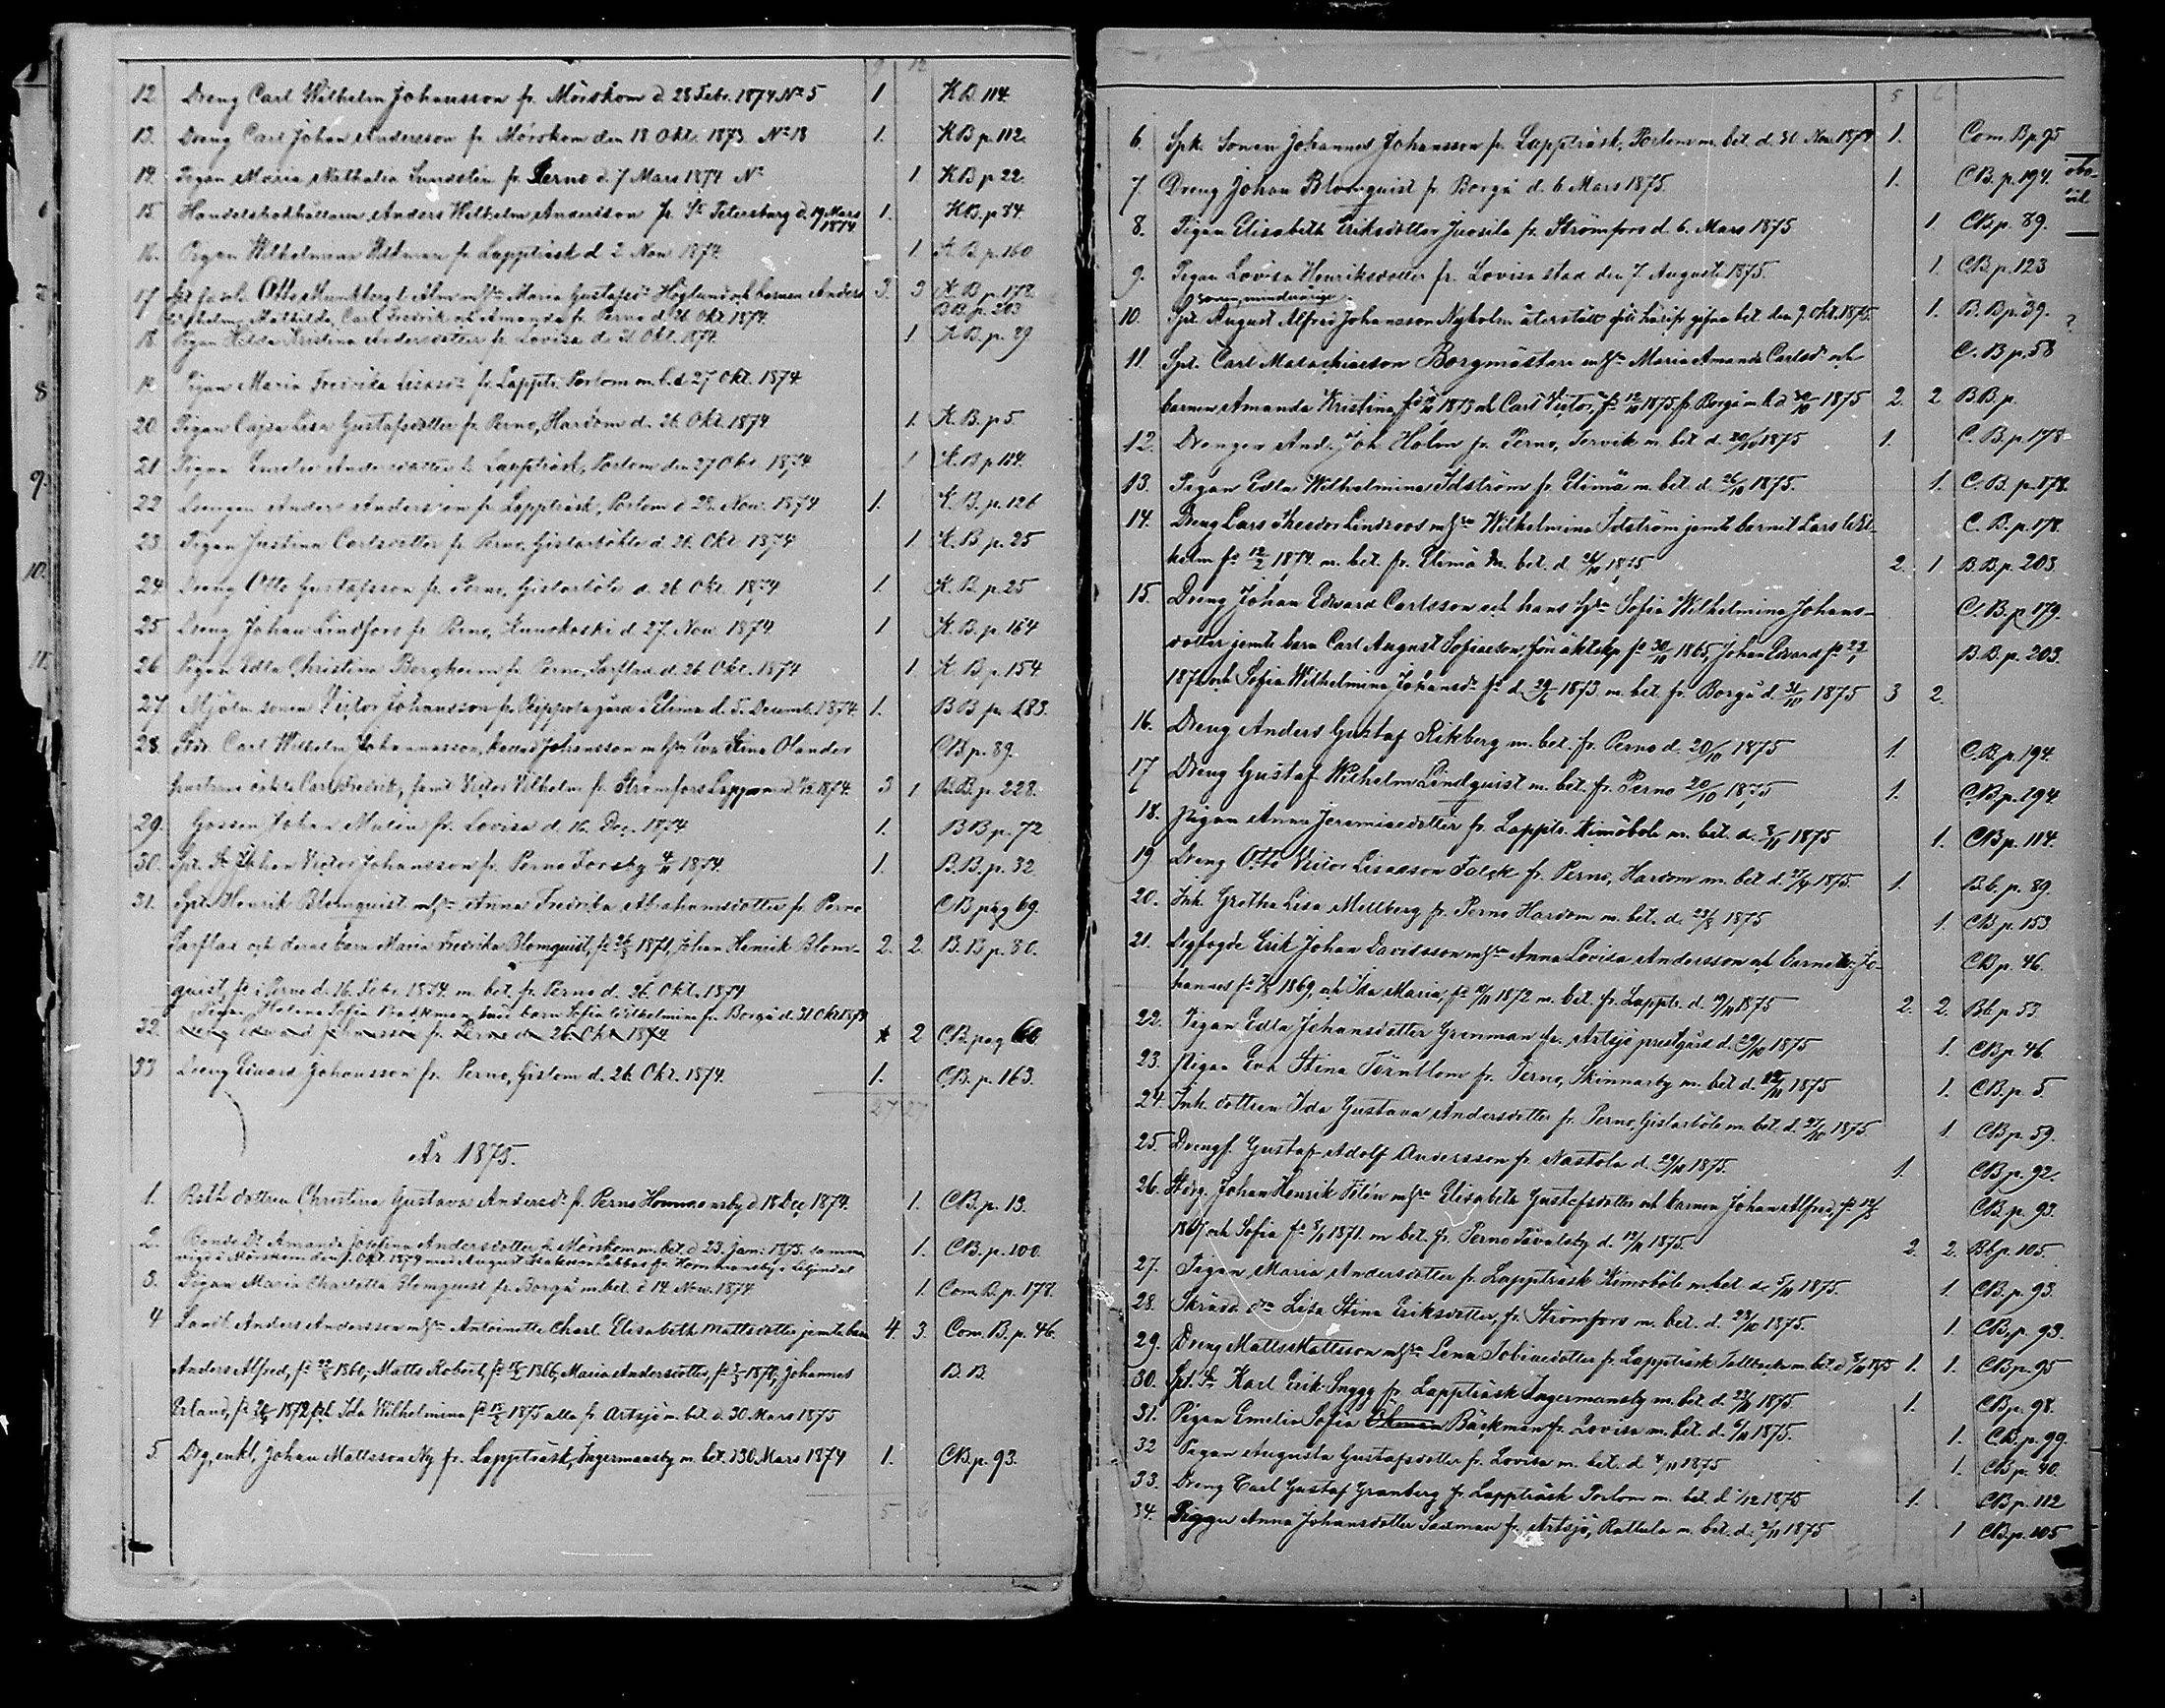 9 12
12. Dreng Carl Wilhelm Johansson fr. Mörskom d. 28 Febr. 1874 No 5 1 KB. 114.
13. Dreng Carl Johan Andersson fr. Mörskom den 18 Okt. 1873 No 18 1. KB p. 112.
14. Pigan Maria Nathalia Sundstén fr. Perno d. 7 Mars 1874 No 1 KB p 22.
15. Handelsbokhållaren Anders Wilhelm Andersson fr. St Petersburg d. 19 Mars 1. KB. p 84.
1874
16. Pigan Wilhelmina fr. Lappträsk d 2 Nov 1874 1 K. B. p. 160
17 Otto Munkberg l. Alm m hu Maria Gustafsdr Höglund och barnen Anders 3. 3 K. B p. 178.
Wilhelm, Mathilda, Carl Fredrik och Amanda fr. Perno d. 26 Okt 1874. BB. p. 203
18 Pigan Hilda Kristina Andersdotter fr. Lovisa d. 31 Okt. 1874. 1 KB. p. 89
19 Pigan Maria Fredrika fr. Lapptr. Porlom m. b. d 27 Okt. 1874.
20. Pigan Cajsa Lisa Gustafsdotter fr. Perno, Hardom d. 26. Okt. 1874 1. K. B. p 5.
21. Pigan Emelie Andersdotter fr. Lappträsk, Porlom den 27 Okt. 1874. 1 K. B p 114.
22 Drengen Anders Andersson fr. Lappträsk, Porlom d. 28. Nov. 1874 1. K. B. p. 126
23 Pigan Justina Carlsdotter fr. Perno, Gislarböhle d. 26. Okt. 1874 1. K. B p. 25
24. Dreng Otto Gustafsson fr. Perno, Gislarböle d. 26 Okt. 1874 1. K. B. p. 25
25 Dreng Johan Lindfors fr. Perno, d. 27. Nov. 1874. 1 K. B. p. 164
26 Pigan Edla Christina Bergheim fr. Perno, Sarflax d. 26. Okt. 1874 1. K B. p. 154
27. Mjöln. sonen Victor Johansson fr. gård i Elimä d. 5. Decemb. 1874. 1. B B p. 183.
28. Carl Wilhelm Johansson m hu Eva Stina Olander CB p. 89.
Carl Fredrik, samt Victor Wilhelm fr. Strömfors 1874. 3 1 B. B p. 228.
29. Gossen Johan Malin fr. Lovisa d. 16. Dec. 1874 1. BB p. 72
30. Spt. Johan Victor Johansson fr. Perno Forsby 4/11 1874. 1. B.B. p. 32.
31. Spt. Henrik Blomquist m hu Anna Fredrika Abrahamsdotter fr. Perno CB pag 69.
Sarflax och deras barn Maria Fredrika Blomquist, 1871, Johan Henrik Blom- 2. 2. B. B p. 80.
quist, fd i Perno d. 16. Febr. 1874. m. bet. fr. Perno d. 26. Okt. 1874
Pigan Helena Sofia barn Sofia Wilhelmina fr. Borgå d. 31 Okt 1874
32. Dreng Edvard Johansson fr. Perno d. 26. Okt. 1874 2 CB. pag 60
33 Dreng Edvard Johansson fr. Perno, Gislom d. 26. Okt. 1874. 1. CB. p. 163.
27 27
År 1875.
1. dottren Christina Gustava Andersdr fr. Perno d 18 Dec 1874. 1. CB. p. 13.
2. Bonde Dr Amanda Josefina Andersdotter fr. Mörskom m. bet. d 23. Jan: 1875. 1. CB. p. 100.
vigd i Mörskom den Okt 1874 med August i Liljendal
3. Pigan Maria Charlotta Blomquist fr. Borgå m. bet. d 14. Nov. 1874 1. Com. B. p. 177.
4 Landb. Anders Andersson m hu Antoinette Charl. Elisabeth Mattsdotter jemte barn 4. 3. Com. B. p. 46.
Anders Alfred, 1860, Matts Robert, 1866, Maria Andersdotter, 1870, Johannes B. B.
Erland, 1872 och Ida Wilhelmina 1875 alla fr. Artsjö m. bet. d. 30 Mars 1875
5. Drg, enkl. Johan Mattsson Ny fr. Lappträsk, Ingermansby m. bet. d 30. Mars 1874 1. CB. p. 93.
5 6
5 6
6. Spk. Sonen Johannes Johansson fr. Lappträsk, Porlom m. bet. d. 31. Nov. 1874 1. Com. Bp 95
7. Dreng Johan Blomquist fr. Borgå d. 6. Mars 1875. 1. CB. p. 194.
8. Pigan Elisabeth Eriksdotter Juosila fr. Strömfors d. 6. Mars 1875 1. CB p. 89.
9. Pigan Lovisa Henriksdotter fr. Lovisa stad den 7. Augusti 1875. 1. CB. p. 123
sonen, minderårige
10. Spt. August Alfred Johansson Nyholm återställt härifr. gifna bet. den 9. Okt. 1875. 1. B. Bp. 39.
11 Spt. Carl Malachiasson Borgmästars m hu Maria Amanda Carlsdr och C. B p. 58
barnen Amanda Kristina 1873 och Carl Victor, fd 12/10 1875, fr. Borgå m. b. d. 1875 2. 2 BB p.
12. Drengen And. Joh. Holm fr. Perno, Tervik m. bet. d. 20/10 1875 1. C. B. p. 178
13. Pigan Edla Wilhelmina Idström fr. Elimä m. bet. d. 26/10 1875. 1. C. B. p. 178.
14. Dreng Lars Theodor Lindroos m hu Wilhelmina Idström jemte barnet Lars Wil- C. B. p. 178.
helm fd 12/2 1874. m. bet. fr. Elimä m. bet. d. 26/10 1875 2. 1 B. B. p. 203.
15. Dreng Johan Edvard Carlsson och hans hu Sofia Wilhelmina Johans- C. B. p 179.
dotter jemte barn Carl August Sofiasson, äktskp fd 30/10 1865, Johan Edvard B. B. p. 203.
1871 och Sofia Wilhelmina Johansdr fd d. 1873. m. bet. fr. Borgå d. 31/10 1875 3 2.
16. Dreng Anders Gustaf Rikberg m. bet. fr. Perno d. 20/10 1875 1. C.B. p. 194.
17 Dreng Gustaf Wilhelm Lindquist m. bet. fr. Perno 20/10 1875 1. C.B. p. 194.
18. Pigan Anna Jeremiasdotter fr. Lapptr. Kimoböle m. bet. d. 1875 1. CB p. 114.
19 Dreng Otto Victor Lisasson Falck fr. Perno, Hardom m. bet. d. 1875. 1. B.b. p. 89.
20. Inh. Gretha Lisa Mellberg fr. Perno Hardom m. bet. d. 1875 1 CB p. 153
21. Erik Johan Davidsson m hu Anna Lovisa Andersson och barnen Jo- CB p. 46.
hannes 1869, och Ida Maria, 1872 m. bet. fr. Lapptr. d. 19/11 1875 2. 2. Bb. p. 53.
22. Pigan Edla Johansdotter Grenman fr. Artsjö prestgård d. 29/10 1875 1. CB p. 46.
23. Pigan Eva Stina Törnblom fr. Perno, Skinnarby m. bet. d. 1875 1. CB p. 5.
24. Inh. dottren Ida Gustava Andersdotter fr. Perno, Gislarböle m. bet. d. 1875 1. CB p. 59.
25. Drengf. Gustaf Adolf Andersson fr. Nastola d. 29/10 1875. 1. CB p. 92.
26. Johan Henrik m hu Elisabeth Gustafsdotter och barnen Johan Alfred, CB p. 93.
och Sofia 1871. m bet. fr. Perno Tavalsby d. 12/11 1875. 2. 2. Bb p. 105.
27. Pigan Maria Andersdotter fr. Lappträsk Kimoböle m. bet. d. 5/11 1875. 1 CB. p. 93.
28. Skrädd. Lisa Stina Eriksdotter, fr. Strömfors m. bet. d. 23/10 1875. 1. CB. p. 93.
29. Dreng Matts Mattsson m hu Lena Tobiasdotter fr. Lappträsk m. bet. d. 1875 1. 1. CB p. 95
30. Karl Erik Snygg fr. Lappträsk Ingermansby m. bet. d. 1875. 1. CB p. 98.
31. Pigan Emelia Sofia Bäckman fr. Lovisa m. bet. d. 1875. 1. C.B. p. 99.
32 Pigan Augusta Gustafsdotter fr. Lovisa m. bet. d. 4/11 1875 1. CB p. 40.
33. Dreng Carl Gustaf Granberg fr. Lappträsk Porlom m. bet. d 1/12 1875 1. CB p. 112
34. Pigan Anna Johansdotter Sadman fr. Artsjö, Rattula m. bet. d. 2/11 1875 1 CB. p. 105